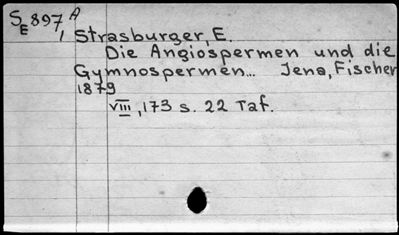 S 897 A
E
, Strasburger, E.
Die Angiospermen und die
Gymnospermen... Jena, Fischer
1879
VIII, 173 s. 22 Taf.